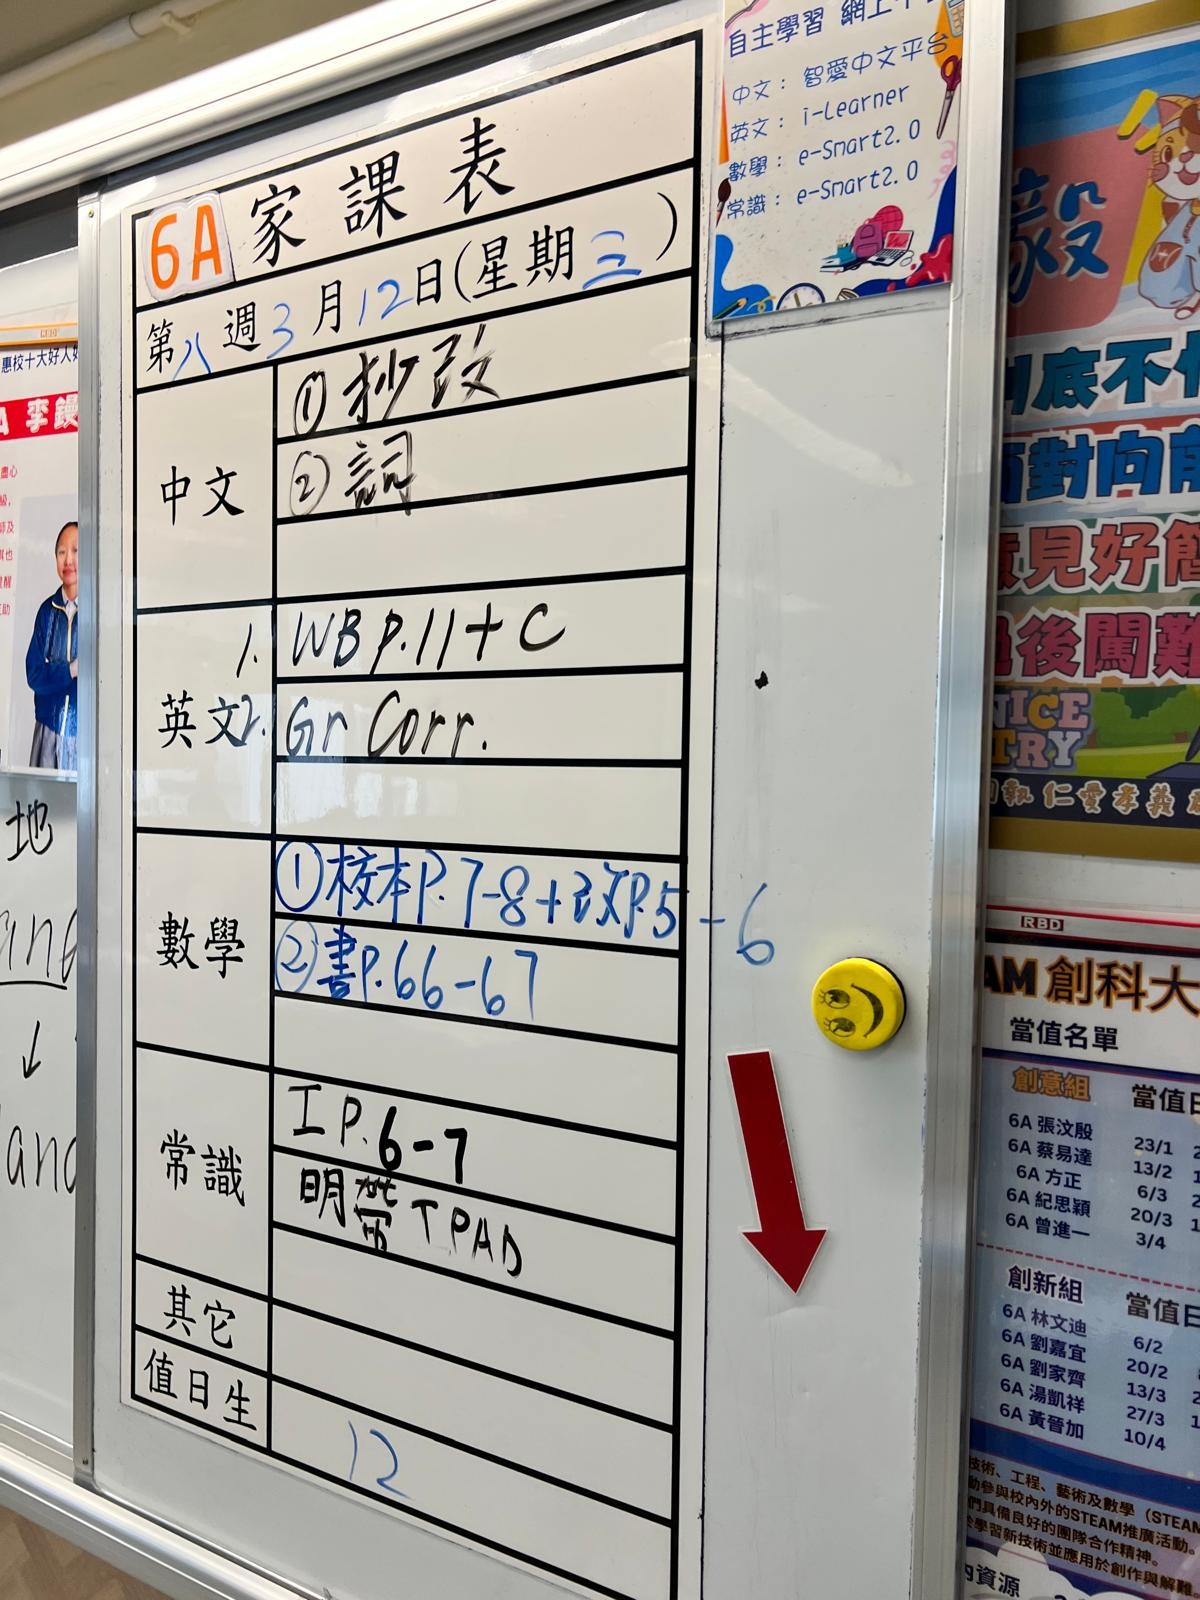 6A 家課表
第八週3月12日(星期三)
中文
① 抄改
② 詞
英文
1. WB P.11 + C
2. Gr Corr.
數學
①校本P.7-8+改P.5-6
②書P.66-67
常識
工 P.6-7
明帶 TPAD
其它
值日生
12
自主學習 網上
中文： 智愛中文平台
英文： i-Learner
數學： e-Smart2.0
常識： e-Smart2.0
RBD
惠校十大好人
A 李
盡心
級,
師及
也
醒
互助
地
and
↓
and
毅
底不
對向前
見好簡
後闖難
NICE
TRY
仁愛孝義
RBD
AM 創科大
當值名單
創意組 當值日
6A 張汶殷 23/1
6A 蔡易達 13/2
6A 方正 6/3
6A 紀思穎 20/3
6A 曾進一 3/4
創新組 當值日
6A 林文迪 6/2
6A 劉嘉宜 20/2
6A 劉家齊 13/3
6A 湯凱祥 27/3
6A 黃晉加 10/4
技術、工程、藝術及數學（STEAM
動參與校內外的STEAM推廣活動。
們具備良好的團隊合作精神。
學習新技術並應用於創作與解難。
資源